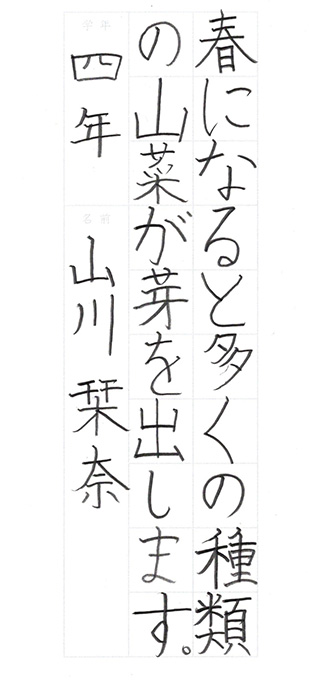 春になると多くの種類
の山菜が芽を出します。
学年
四年
名前
山川 栞奈